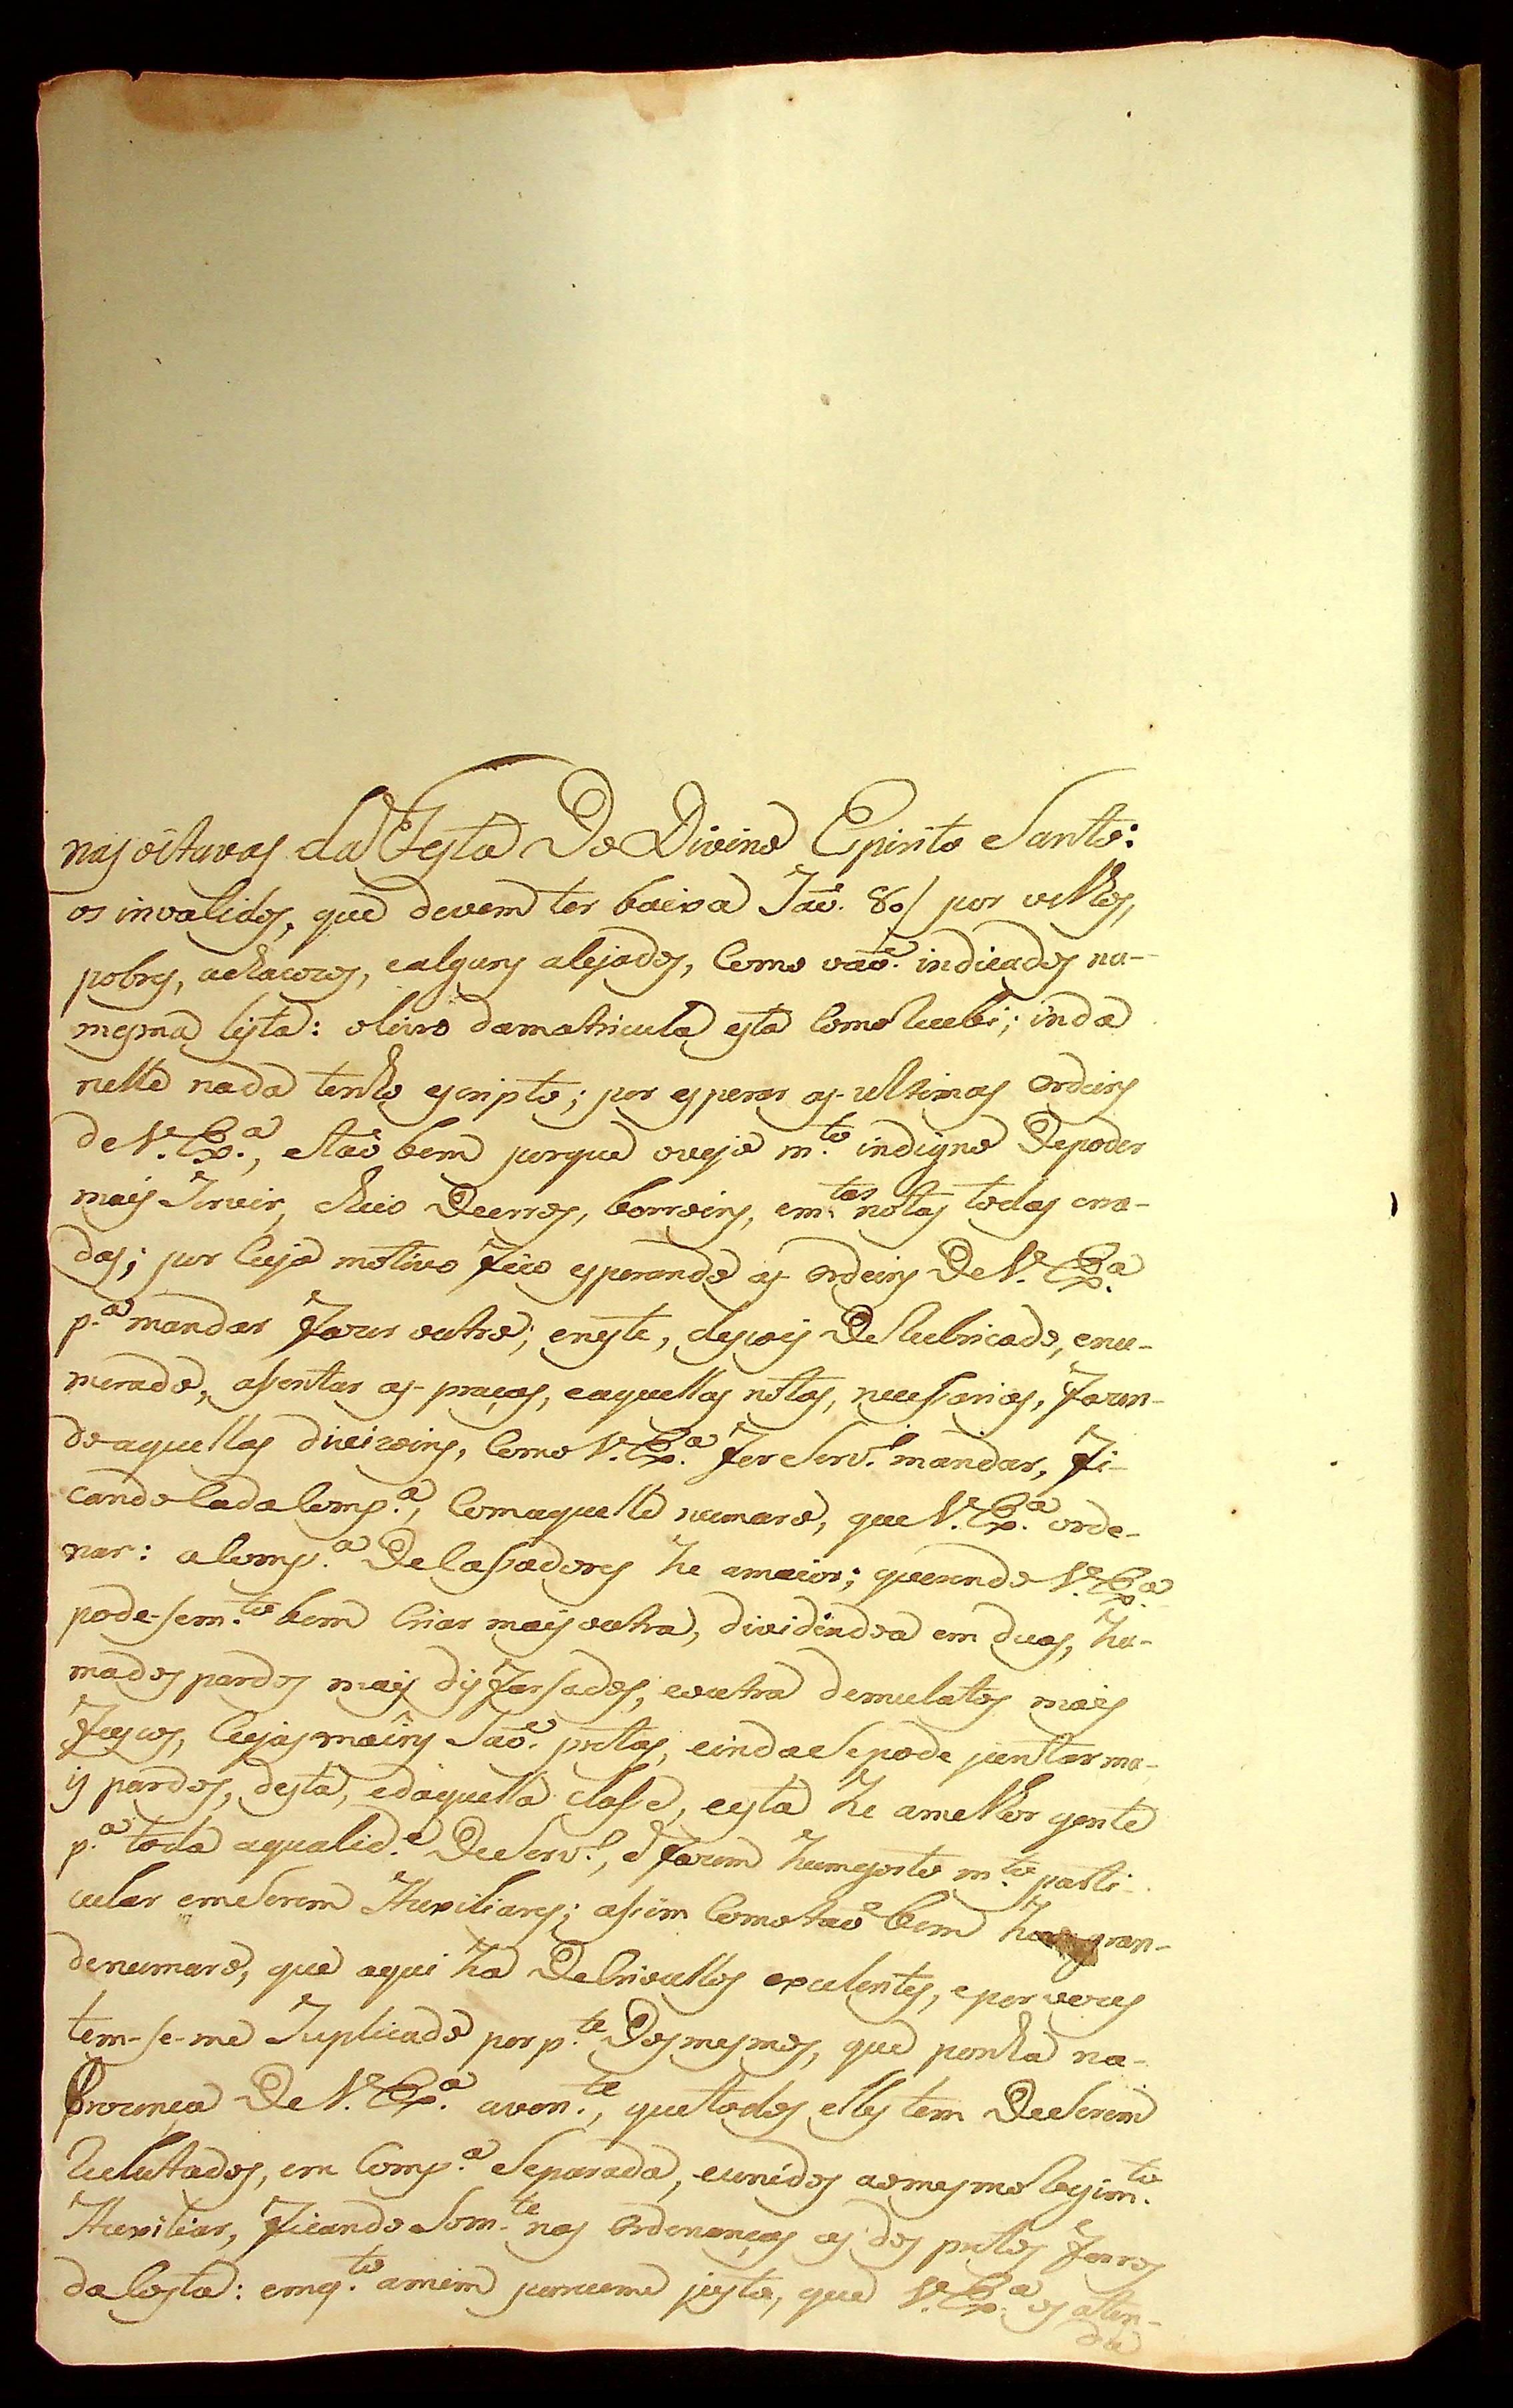 nas oitavas da Festa Do Divino Espirito Santo:
os invalidos, que devem ter baixa Saõ. 80/ por velhos,
pobres, achacozos, ealguns alejados, Como vaõ. indicados na-
mesma lista: olivro damatricula esta Como Recebi; inda
nelle nada tenho escripto; por esperar as ultimas Ordeins
de V. Ex.ª, etaõ bem porque ovejo m.to indigno Depoder
mais Servir, cheio Deerros, borroins, em.tas notas todas erra-
das; por Cujo motivo fico esperando as Ordeins De V. Ex.ª
p.ª mandar fazer outro; eneste, depois De Rubricado, enu-
merado, assentar as praças, eaquellas notas, necessarias, fazen-
do aquellas divizoins, Como V. Ex.ª for Serv.º mandar, fi-
cando Cada Comp.ª, Com aquelle numaro, que V. Ex.ª orde-
nar: a Comp.ª De Cassadores he amaior; querendo V. Ex.ª
pode-se m.to bem Criar mais outra, dividindoa em duas, hu-
ma dos pardos mais disfarsados, eoutra demulatos mais
fuscos, Cujas maĩns Saõ. pretas, einda Sepode juntar ma-
is pardos, desta, edaquella classe, eesta he amelhor gente
p.ª toda aqualid.e DeServ.º, e fazem humgosto m.to parti-
cular emSerem Auxiliares; assim Comotaõ bem gran-
denumaro, que aqui ha DeCrioullos excelentes, epor vezes
tem-se-me Suplicado por p.te Dosmesmos, que ponha na-
prezença De V. Ex.ª avon.te, quetodos elles tem DeSerem
Reclutados, em Comp.ª Separada, eunidos aomesmo Regim.to
Auxiliar, ficando Som.te nas Ordenanças as dos pretos forros
da Costa: emq.to amim pareceme justo, que V. Ex.ª os aten-
da